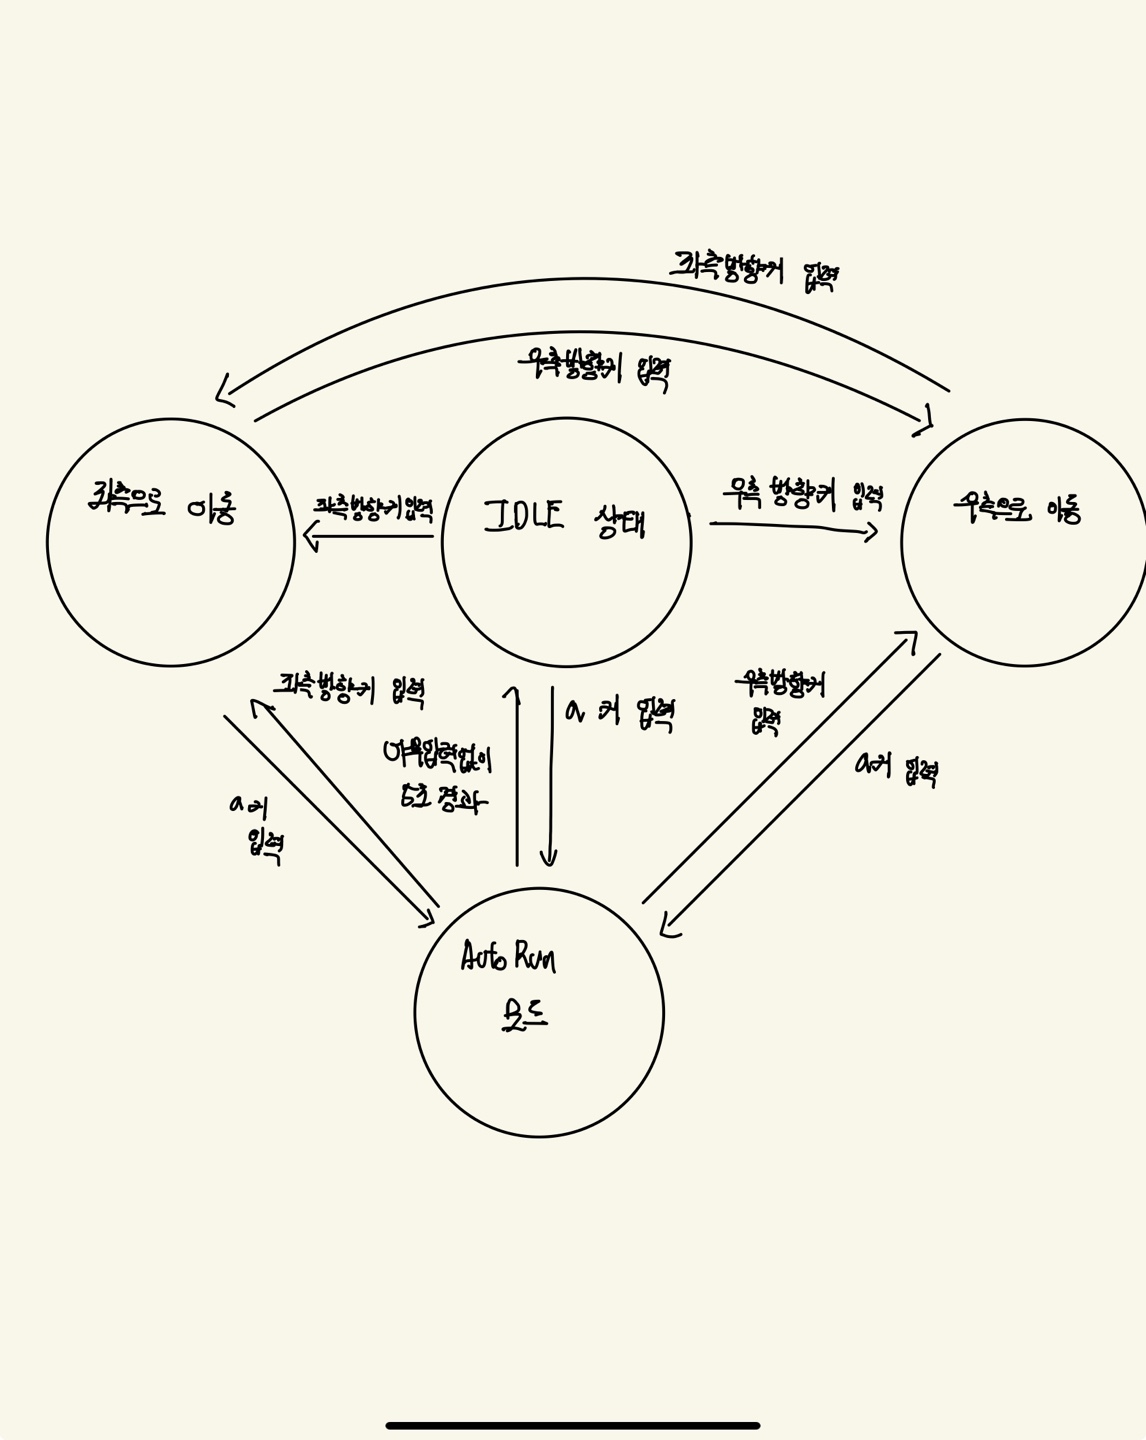 좌측방향키 입력
우측방향키 입력
좌측으로 이동
좌측방향키 입력
IDLE 상태
우측 방향키 입력
우측으로 이동
좌측방향키 입력
아무입력없이
5초 경과
a 키 입력
우측방향키
입력
a키 입력
a키
입력
Auto Run
모드